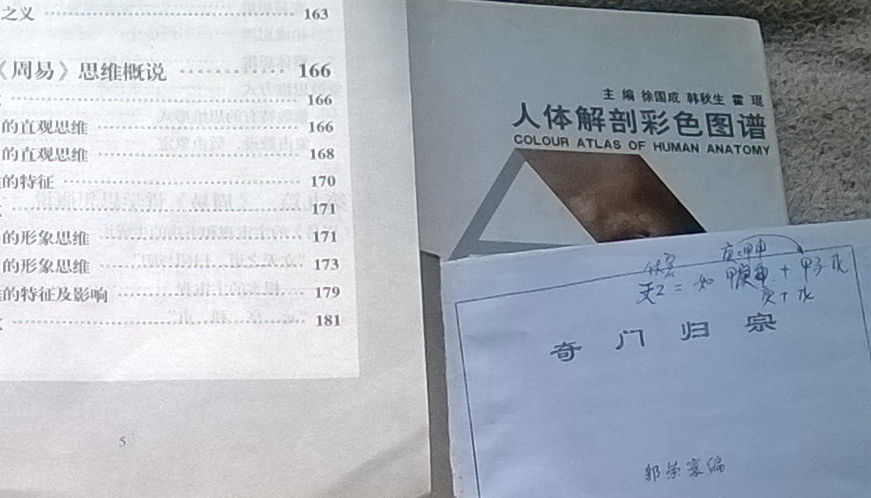 之义 ………… 163
《周易》思维概说 ………… 166
………… 166
的直观思维 ………… 166
的直观思维 ………… 168
的特征 ………… 170
………… 171
的形象思维 ………… 171
的形象思维 ………… 173
的特征及影响 ………… 179
………… 181
5
主编 徐国成 韩秋生 霍琨
人体解剖彩色图谱
COLOUR ATLAS OF HUMAN ANATOMY
奇门归宗
郭荣家编